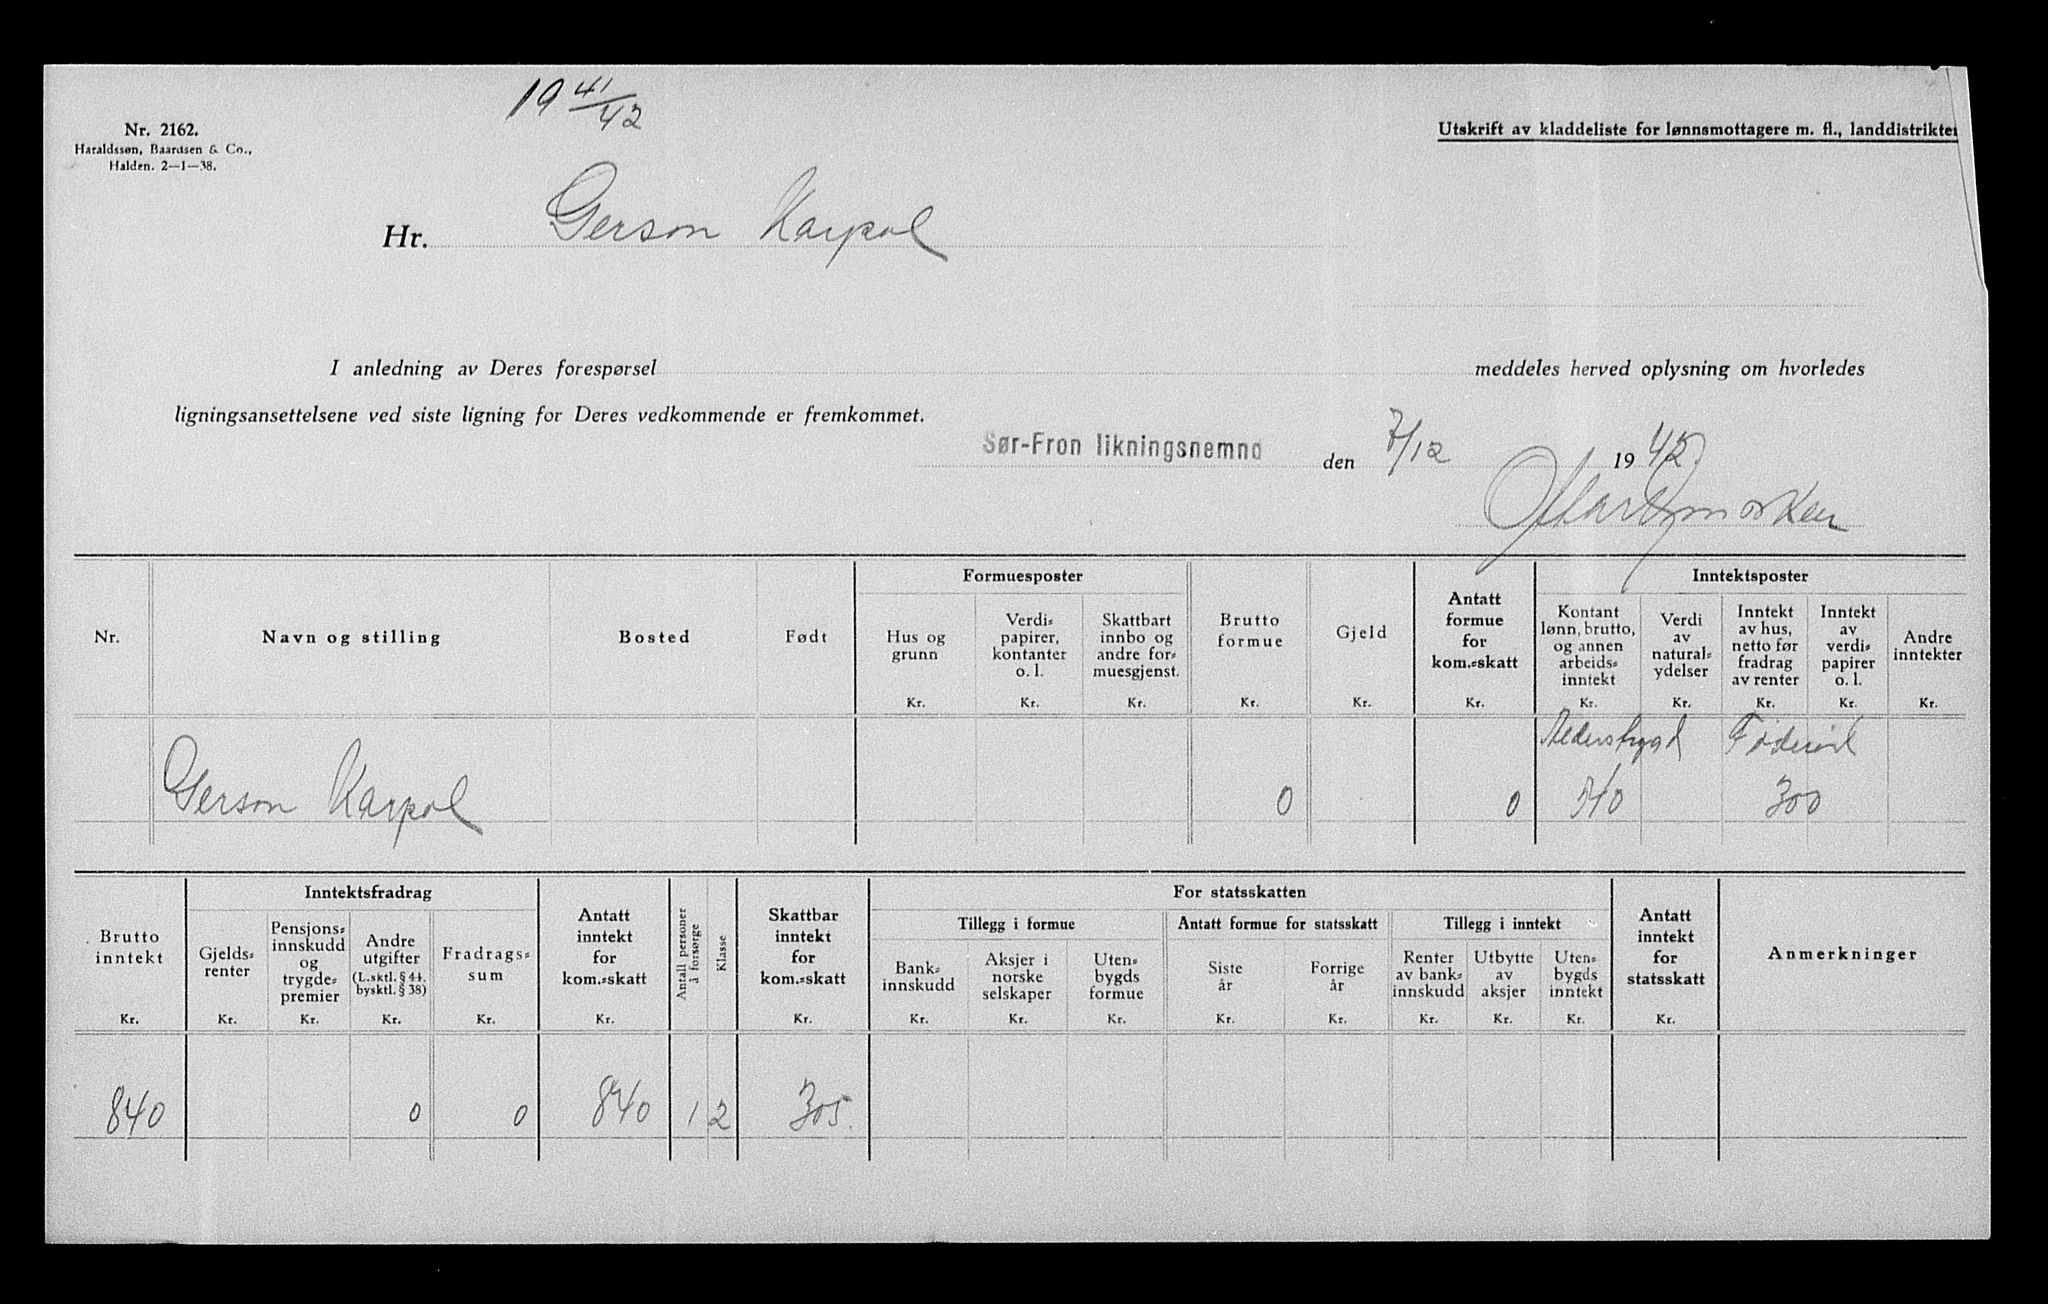 19 41/42
Nr. 2162.
Haraldssøn, Baardsen & Co.,
Halden. 2—1—38.
Utskrift av kladdeliste for lønnsmottagere m. fl., landdistrikter
Hr. Gerson Karpol
I anledning av Deres forespørsel meddeles herved oplysning om hvorledes
ligningsansettelsene ved siste ligning for Deres vedkommende er fremkommet.
Sør-Fron likningsnemnd den 7/12 1942.
Nr.
Navn og stilling
Bosted
Født
Formuesposter
Hus og
grunn
Kr.
Verdi-
papirer,
kontanter
o. l.
Kr.
Skattbart
innbo og
andre for-
muesgjenst.
Kr.
Brutto
formue
Kr.
Gjeld
Kr.
Antatt
formue
for
kom.-skatt
Kr.
Inntektsposter
Kontant
lønn, brutto,
og annen
arbeids-
inntekt
Kr.
Verdi
av
natural-
ydelser
Kr.
Inntekt
av hus,
netto før
fradrag
av renter
Kr.
Inntekt
av
verdi-
papirer
o. l.
Kr.
Andre
inntekter
Kr.
Alderstrygd Føderåd
Gerson Karpol 0 0 540 300
Brutto
inntekt
Kr.
Inntektsfradrag
Gjelds-
renter
Kr.
Pensjons-
innskudd
og
trygde-
premier
Kr.
Andre
utgifter
(L.sktl. § 44,
bysktl. § 38)
Kr.
Fradrags-
sum
Kr.
Antatt
inntekt
for
kom.-skatt
Kr.
Antall personer
å forsørge
Klasse
Skattbar
inntekt
for
kom.-skatt
Kr.
For statsskatten
Tillegg i formue
Bank-
innskudd
Kr.
Aksjer i
norske
selskaper
Kr.
Uten-
bygds
formue
Kr.
Antatt formue for statsskatt
Siste
år
Kr.
Forrige
år
Kr.
Tillegg i inntekt
Renter
av bank-
innskudd
Kr.
Utbytte
av
aksjer
Kr.
Uten-
bygds
inntekt
Kr.
Antatt
inntekt
for
statsskatt
Kr.
Anmerkninger
840 0 0 840 1 2 305.